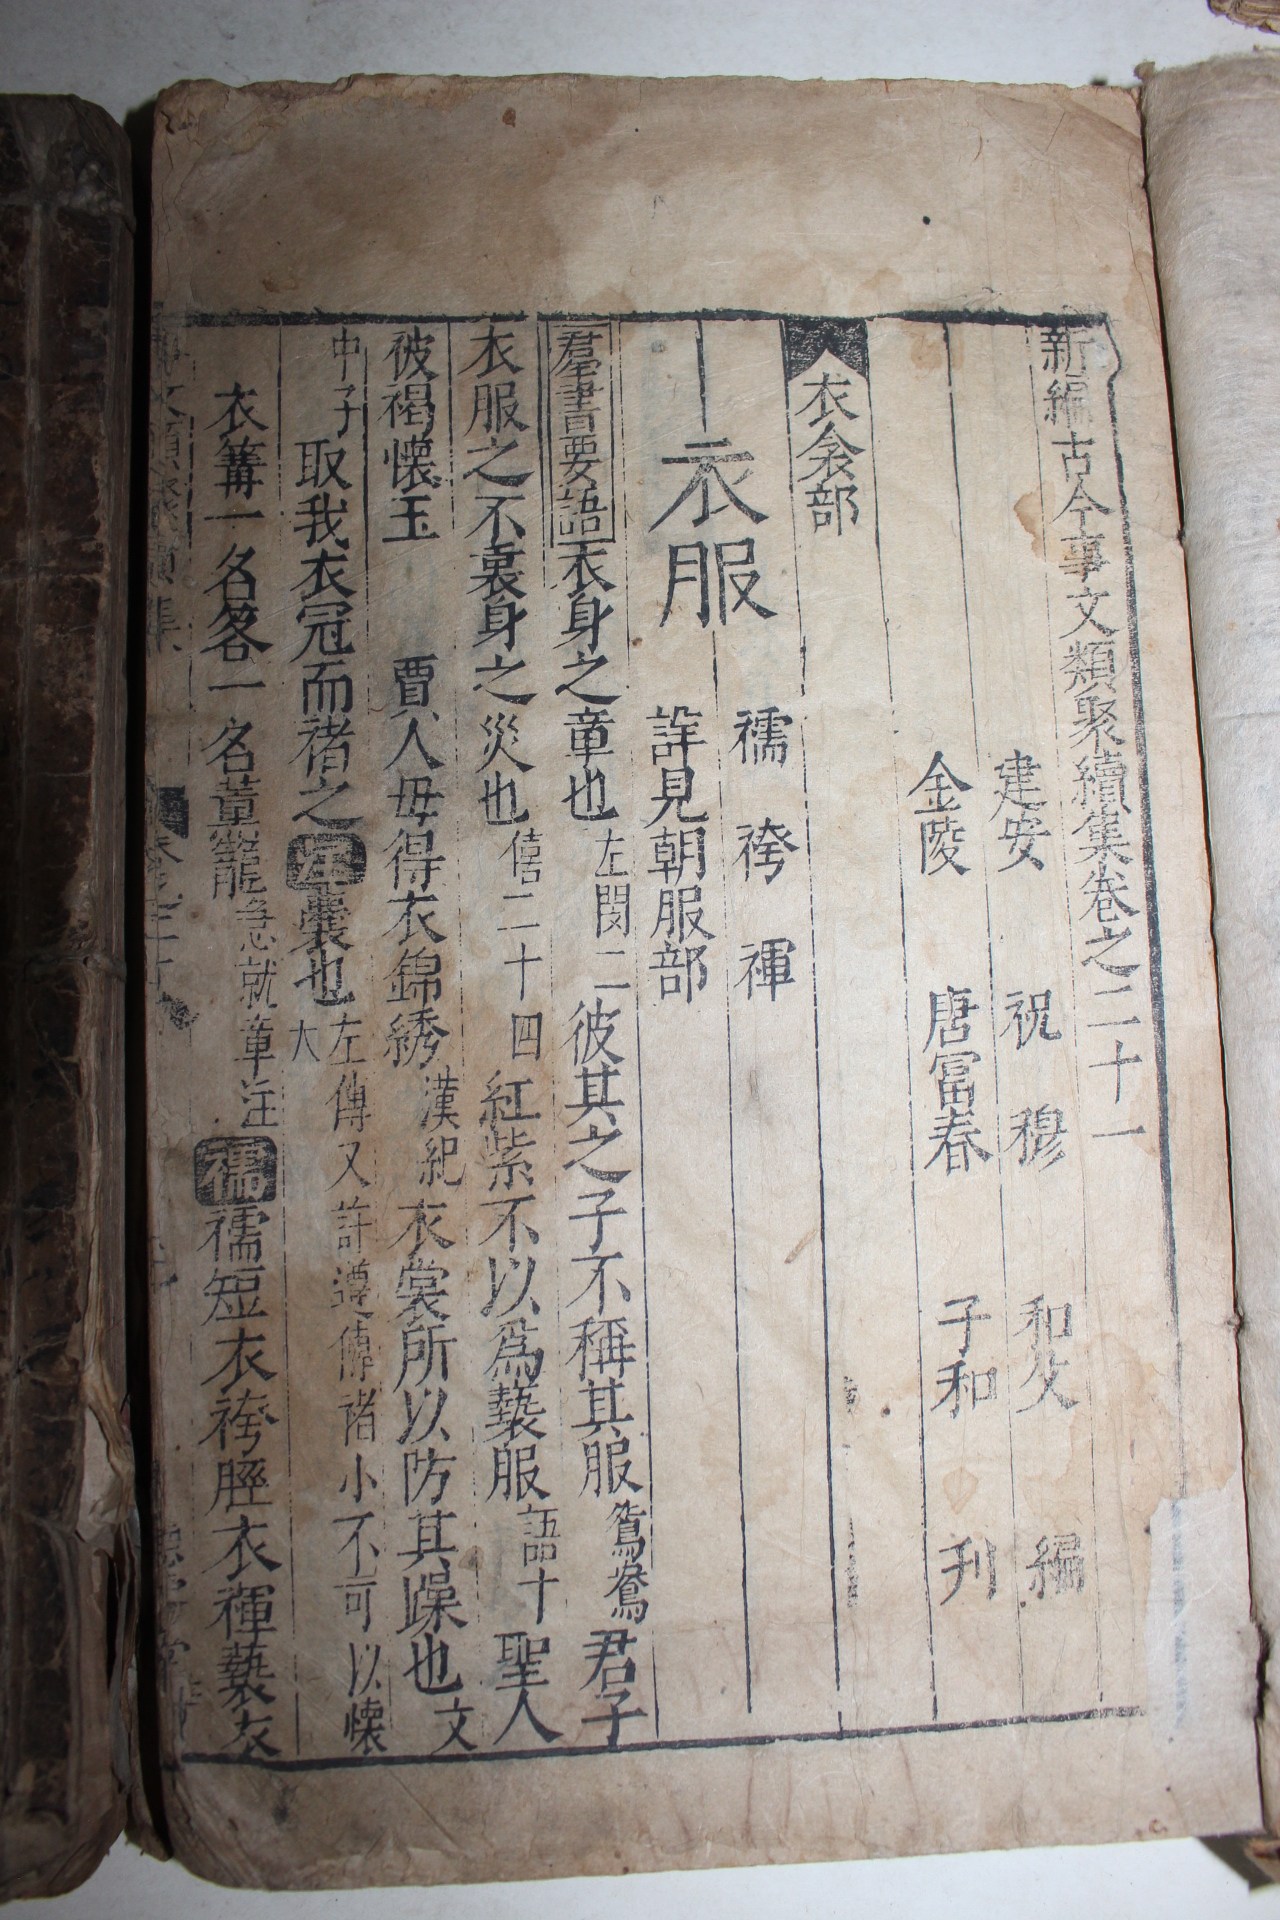 新編古今事文類聚續集卷之二十一
建安 祝穆 和父 編
金陵 唐富春 子和 刋
衣衾部
襦 袴 褌
衣服
詳見朝服部
群書要語 衣身之章也 左閔二 彼其之子不稱其服 鴛鴦 君子
衣服之不衷身之災也 僖二十四 紅紫不以爲褻服 語十 聖人
被褐懷玉 賈人毋得衣錦綉 漢紀 衣裳所以防其躁也 文
中子 取我衣冠而褚之 囊也 左傳又許遵傳褚小不可以懷
大
衣篝一名客一名薰籠 急就章注 襦 襦短衣袴脛衣褌褻衣